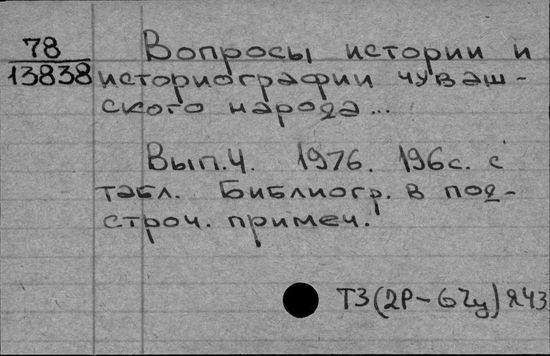 78
13838
Вопросы истории и
историографии чуваш-
ского народа...
Вып.4. 1976. 196с. с
табл. Библиогр. в под-
строч. примеч.
Т3(2Р-6Чу)я43